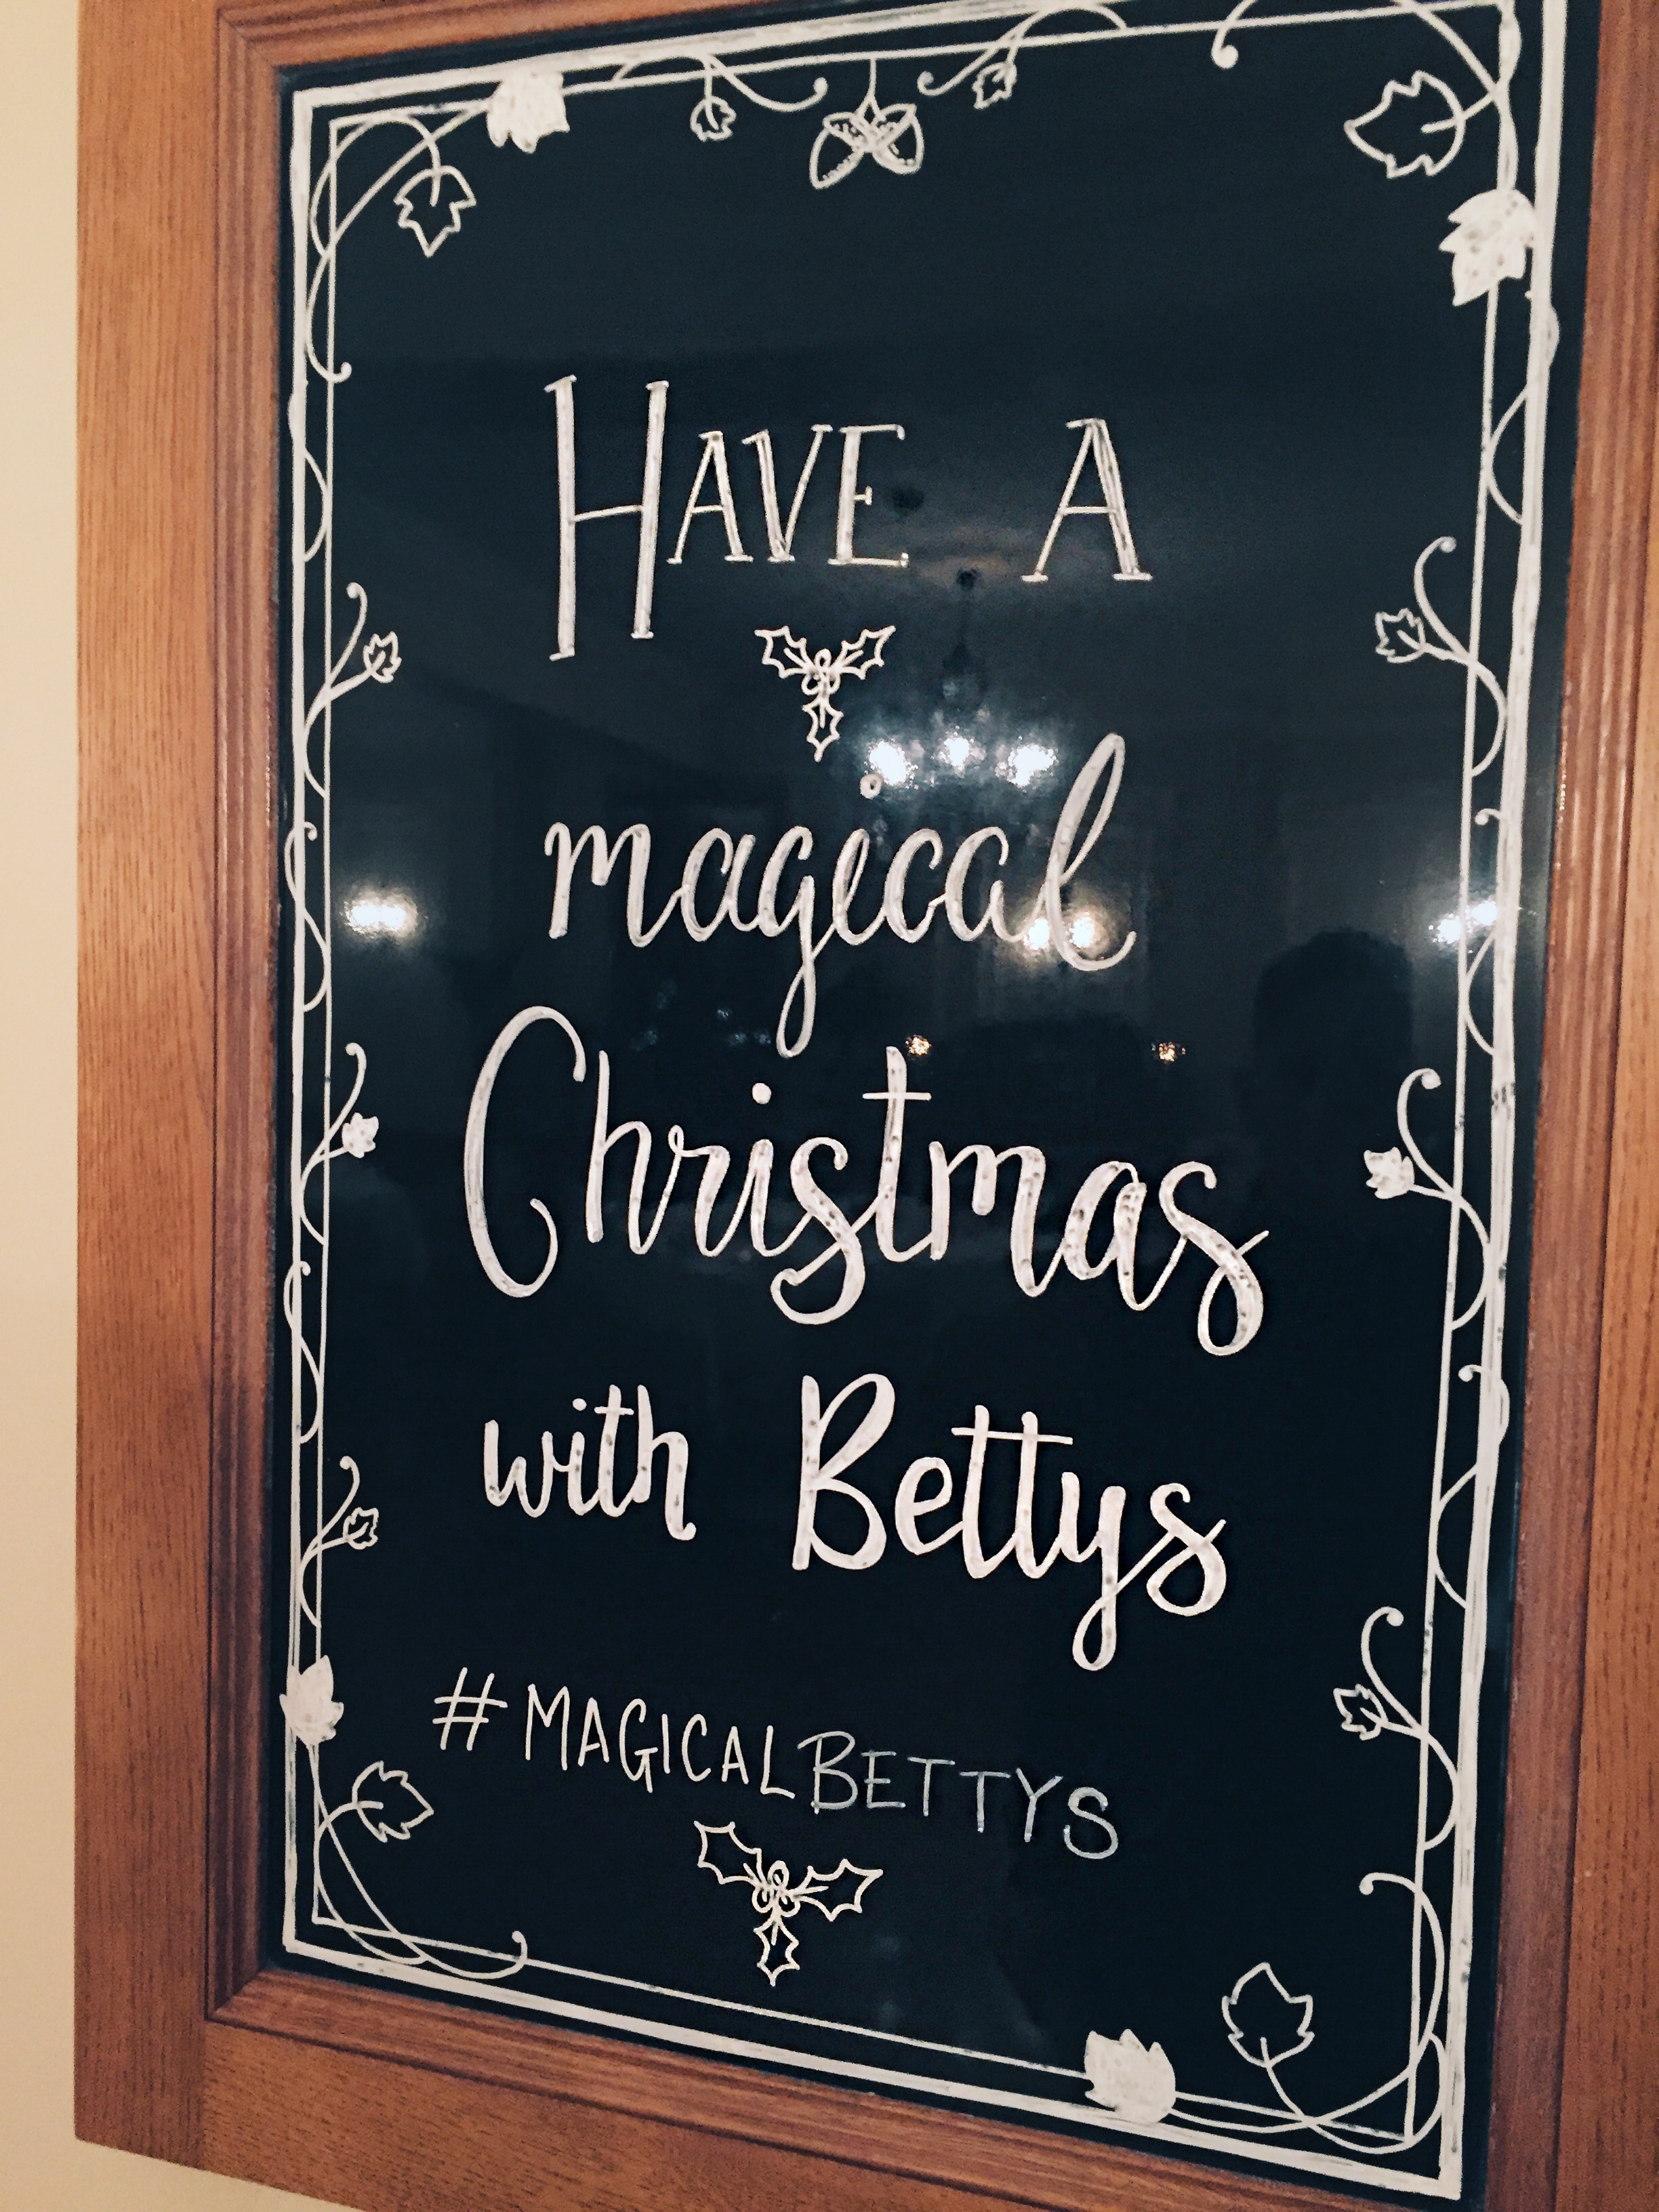 HAVE A
magical
Christmas
with Bettys
#MAGICALBETTYS